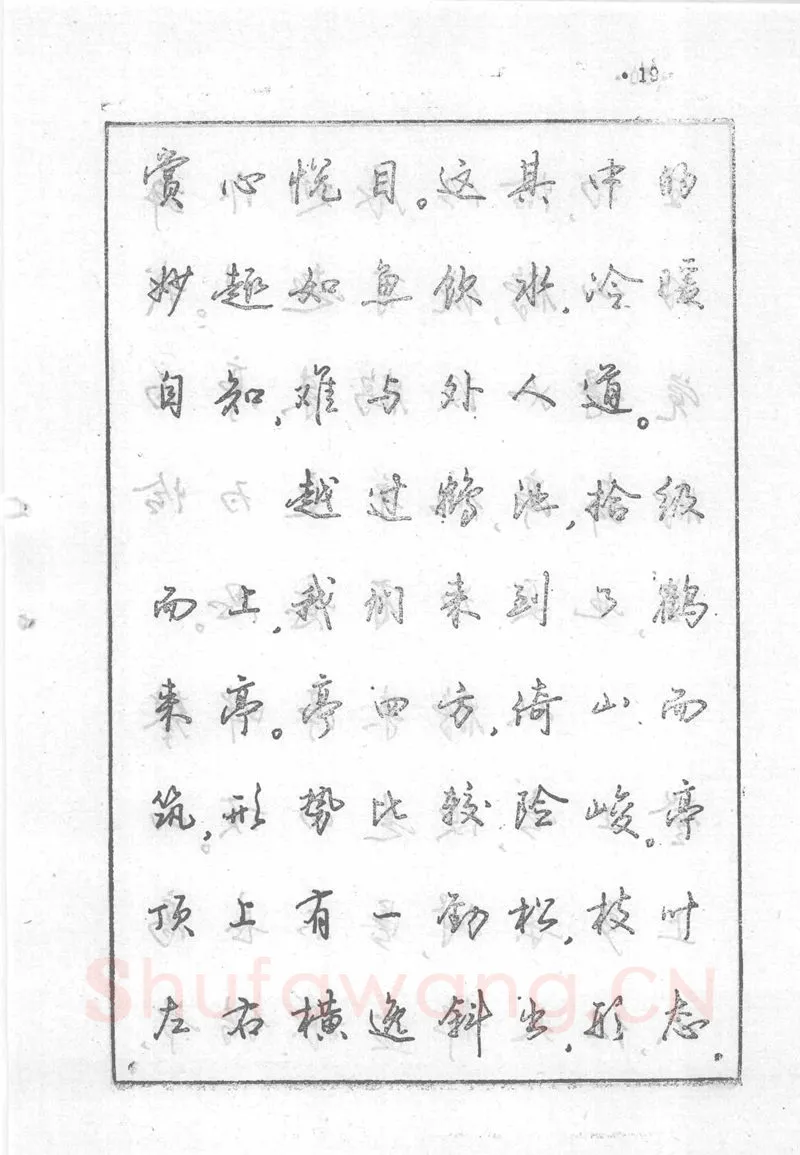 ·19
赏心悦目。这其中的
妙趣如鱼饮水,冷暖
自知,难与外人道。
越过鹤池,拾级
而上,我们来到了鹤
来亭。亭四方,倚山而
筑,形势比较险峻。亭
顶上有一劲松,枝叶
左右横逸斜出,形态
Shufawang.CN